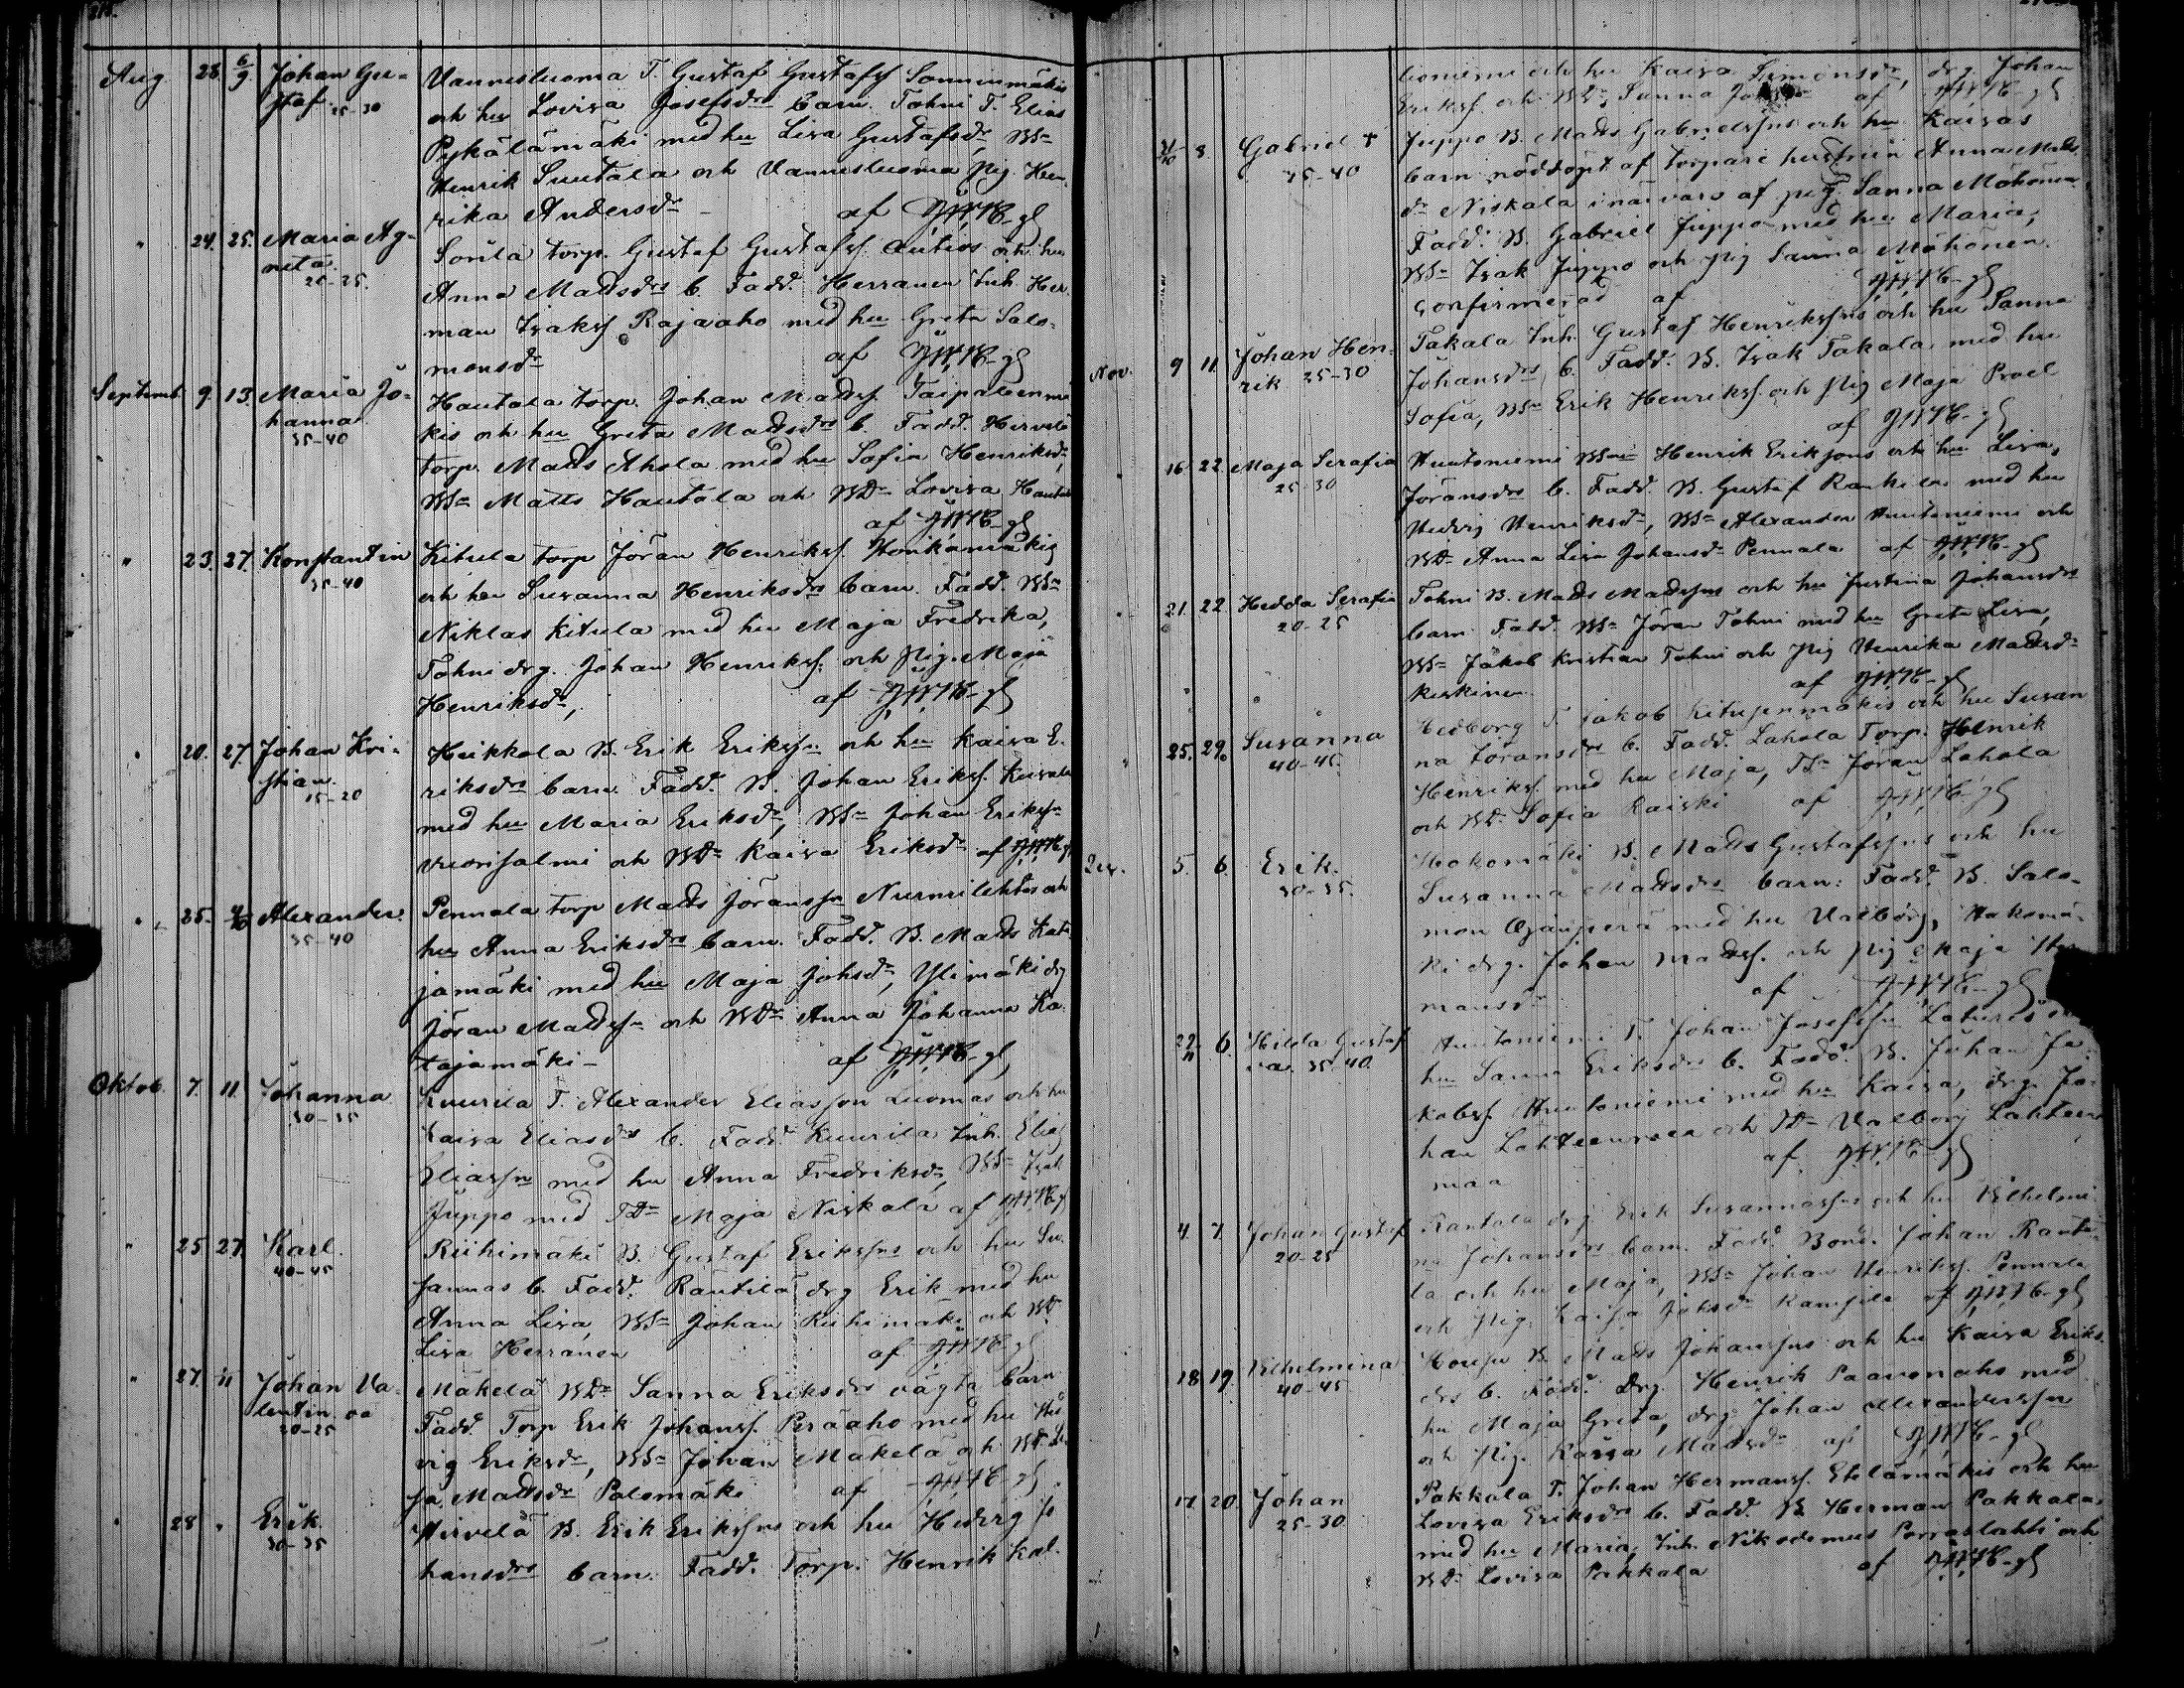 Aug. 28 6/9 Johan Gu- Vannesluoma T. Gustaf Gustafss Sommermäkis
staf 25-30 och hu Lovisa Josefsdrs barn. Fohni T. Elias
Pykälämäki med hu Lisa Gustafsdr, BSn
Henrik Suutala och Vannesluoma Pig. Hen-
rika Andersdr af
" 24. 25. Maria Ag- torp. Gustaf Gustafss Autios och hu
neta 20-25. Anna Madsdrs b. Fadd. Herranen Inh. Her-
man Isakss Rajaaho med hu Greta Salo-
monsdr af
Septemb. 9. 13. Maria Jo- Hautala torp. Johan Madss. Taipaleenmä
hanna 35-40 kis och hu Greta Madsdrs b. Fadd. Hirvelä
torp. Mads Ahola med hu Sofia Henriksdr,
BSn Matts Hautala och BDr Lovisa Hautala
af
" 23. 27. Konstantin Kitula torp Jöran Henrikss. Honkamäkis
35-40 och hu Susanna Henriksdrs barn. Fadd. BSn
Niklas Kitula med hu Maja Fredrika,
Tohni drg. Johan Henrikss. och Pig. Maja
Henriksdr, af
" 20. 27. Johan Kri- Heikkola B. Erik Erikssn och hu Kaisa E-
stian. 15-20 riksdrs barn Fadd. B. Johan Erikss.
med hu Maria Eriksdr, BSn Johan Erikssn
Vuorisalmi och BDr Kaisa Eriksdr af
" 25. 4/10 Alexander. Pennala torp Mads Jöranssn Nurmilehtos och
35-40 hu Anna Eriksdrs barn. Fadd. B. Mads Kata-
jamäki med hu Maja Johsdr, Ylimäki drg
Jöran Madssn och BDr Anna Johanna Ka-
tajamäki - af
Oktob. 7. 11. Johanna Kuurila T. Alexander Eliasson Luomas och hu
30-35 Kaisa Eliasdrs b. Fadd. Kuurila Inh. Elias
Eliassn med hu Anna Fredriksdr, BSn Isak
Juppo med TDr Maja Niskala af
" 25 27. Karl. Riihimäki B. Gustaf Erikssns och hu Su-
40-45 sannas b. Fadd. Rautila drg Erik med hu
Anna Lisa, BSn Johan Riihimäki och BD
Lisa Herranen af
" 27. Johan Va- Mäkelä BDr Sanna Eriksdrs oägta barn
lentin oä 20-25 Fadd. Torp Erik Johanss. Peräaho med hu Hed
vig Eriksdr, BSn Johan Mäkelä och BD. Li
sa Madsdr Palomäki af
" 28 " Erik Hirvelä B. Erik Erikssns och hu Hedvig Jo
30-35 hansdrs barn. Fadd. Torp. Henrik Kal-
lioniemi och hu Kaisa Simonsdr, drg. Johan
Erikss och BDr Sanna af
31/10 8. Gabriel + Juppo B. Mads Gabrielssns och hu Kaisas
35-40 barn nöddöpt af torpare hustrun Anna Mads
dr Niskala i närvaro af pig. Sanna Mähönen
Fadd. B. Gabriel Juppo med hu Maria,
BSn Isak Juppo och Pig Sanna Mähönen.
Confirmerad af
Nov. 9 11. Johan Hen- Takala Inh. Gustaf Henrikssns och hu Sanna
rik 25-30 Johansdrs b. Fadd. B. Isak Takala med hu
Sofia, BSn Erik Henrikss. och Pig Maja Proel
af
16. 22. Maja Serafia Huutoniemi BSn Henrik Erikssons och hu Lisa
25-30 Jöransdrs b. Fadd. B. Gustaf med hu
Hedvig Henriksdr, BSn Alexander Huutoniemi och
BDr Anna Lisa Johansdr Pennala af
21. 22. Hedda Serafia Tohni B. Mads Madssns och hu Justina Johansdrs
20-25 barn. Fadd. BSn Jöran Tohni med hu Greta Lisa,
BSn Jakob Kristian Tohni och Pig Henrika Madsdr
Keskinen af
25. 29. Susanna Hedborg T. Jakob och hu Susan
40-45. na Jöransdrs b. Fadd. Lahola Torp. Henrik
Henrikss. med hu Maja, TSn Jöran Lahola
och BDr Sofia Raiski af
Dec. 5. 6. Erik. Hakomäki B. Mads Gustafssns och hu
30-35. Susanna Madsdrs barn. Fadd. B. Salo-
mon Ojanperä med hu Valborg, Hakomä-
ki drg. Johan Madss. och Pig Maja Her
mansdr af
29/11 6. Hilda Gustaf Huutoniemi T. Johan Josefssn
va. 35-40. hu Sanna Eriksdrs b. Fadd. B. Johan Ja-
kobss Huutoniemi med hu Kaisa, drg. Jo-
han Lahteenmaa och TDr Valborg Lahteen
maa af
4. 7. Johan Gustaf Rantala drg Erik Susannassns och hu Vilhelmi
20-25 na Johansdrs barn. Fadd. Bond. Johan Ranta-
la och hu Maja, BSn Johan Henrikss. Pennala
och Pig. Kaisa Johsdr af
18. 19. Vilhelmina B. Mads Johanssns och hu Kaisa Eriks
40-45 drs b. Fadd. Drg. Henrik Paavonaho med
hu Maja Greta, drg. Johan Alexanderssn
och Pig. Kaisa Madsdr af
17. 20. Johan Pakkala T. Johan Hermanss. Etelämäkis och hu
25-30 Lovisa Eriksdrs b. Fadd. B. Herman Pakkala
med hu Maria, Inh. Nikodemus Porraslahti och
BDr Lovisa Pakkala af